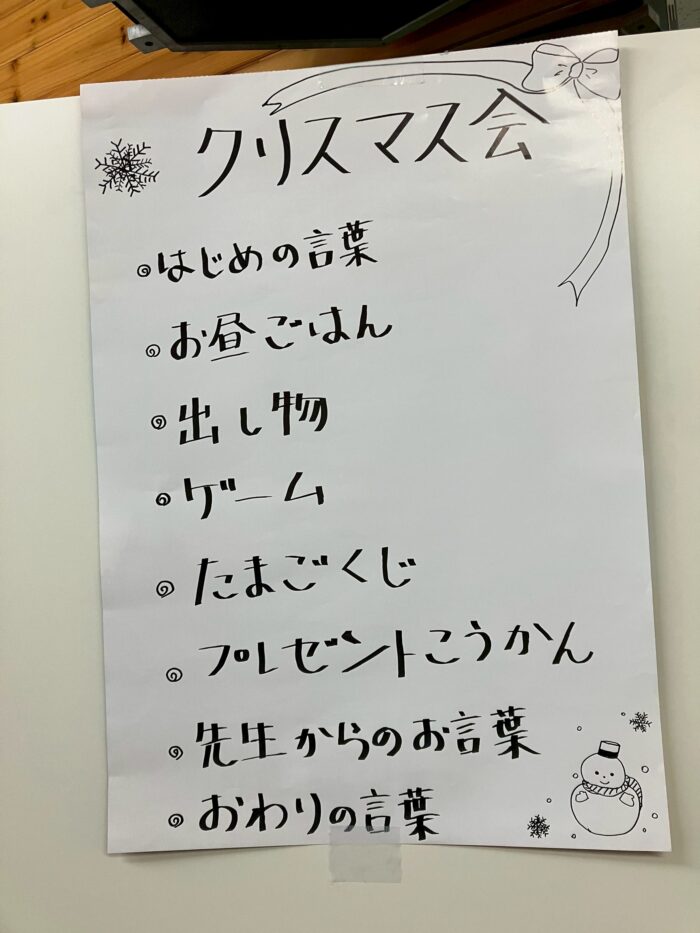 クリスマス会
はじめの言葉
お昼ごはん
出し物
ゲーム
たまごくじ
プレゼントこうかん
先生からのお言葉
おわりの言葉